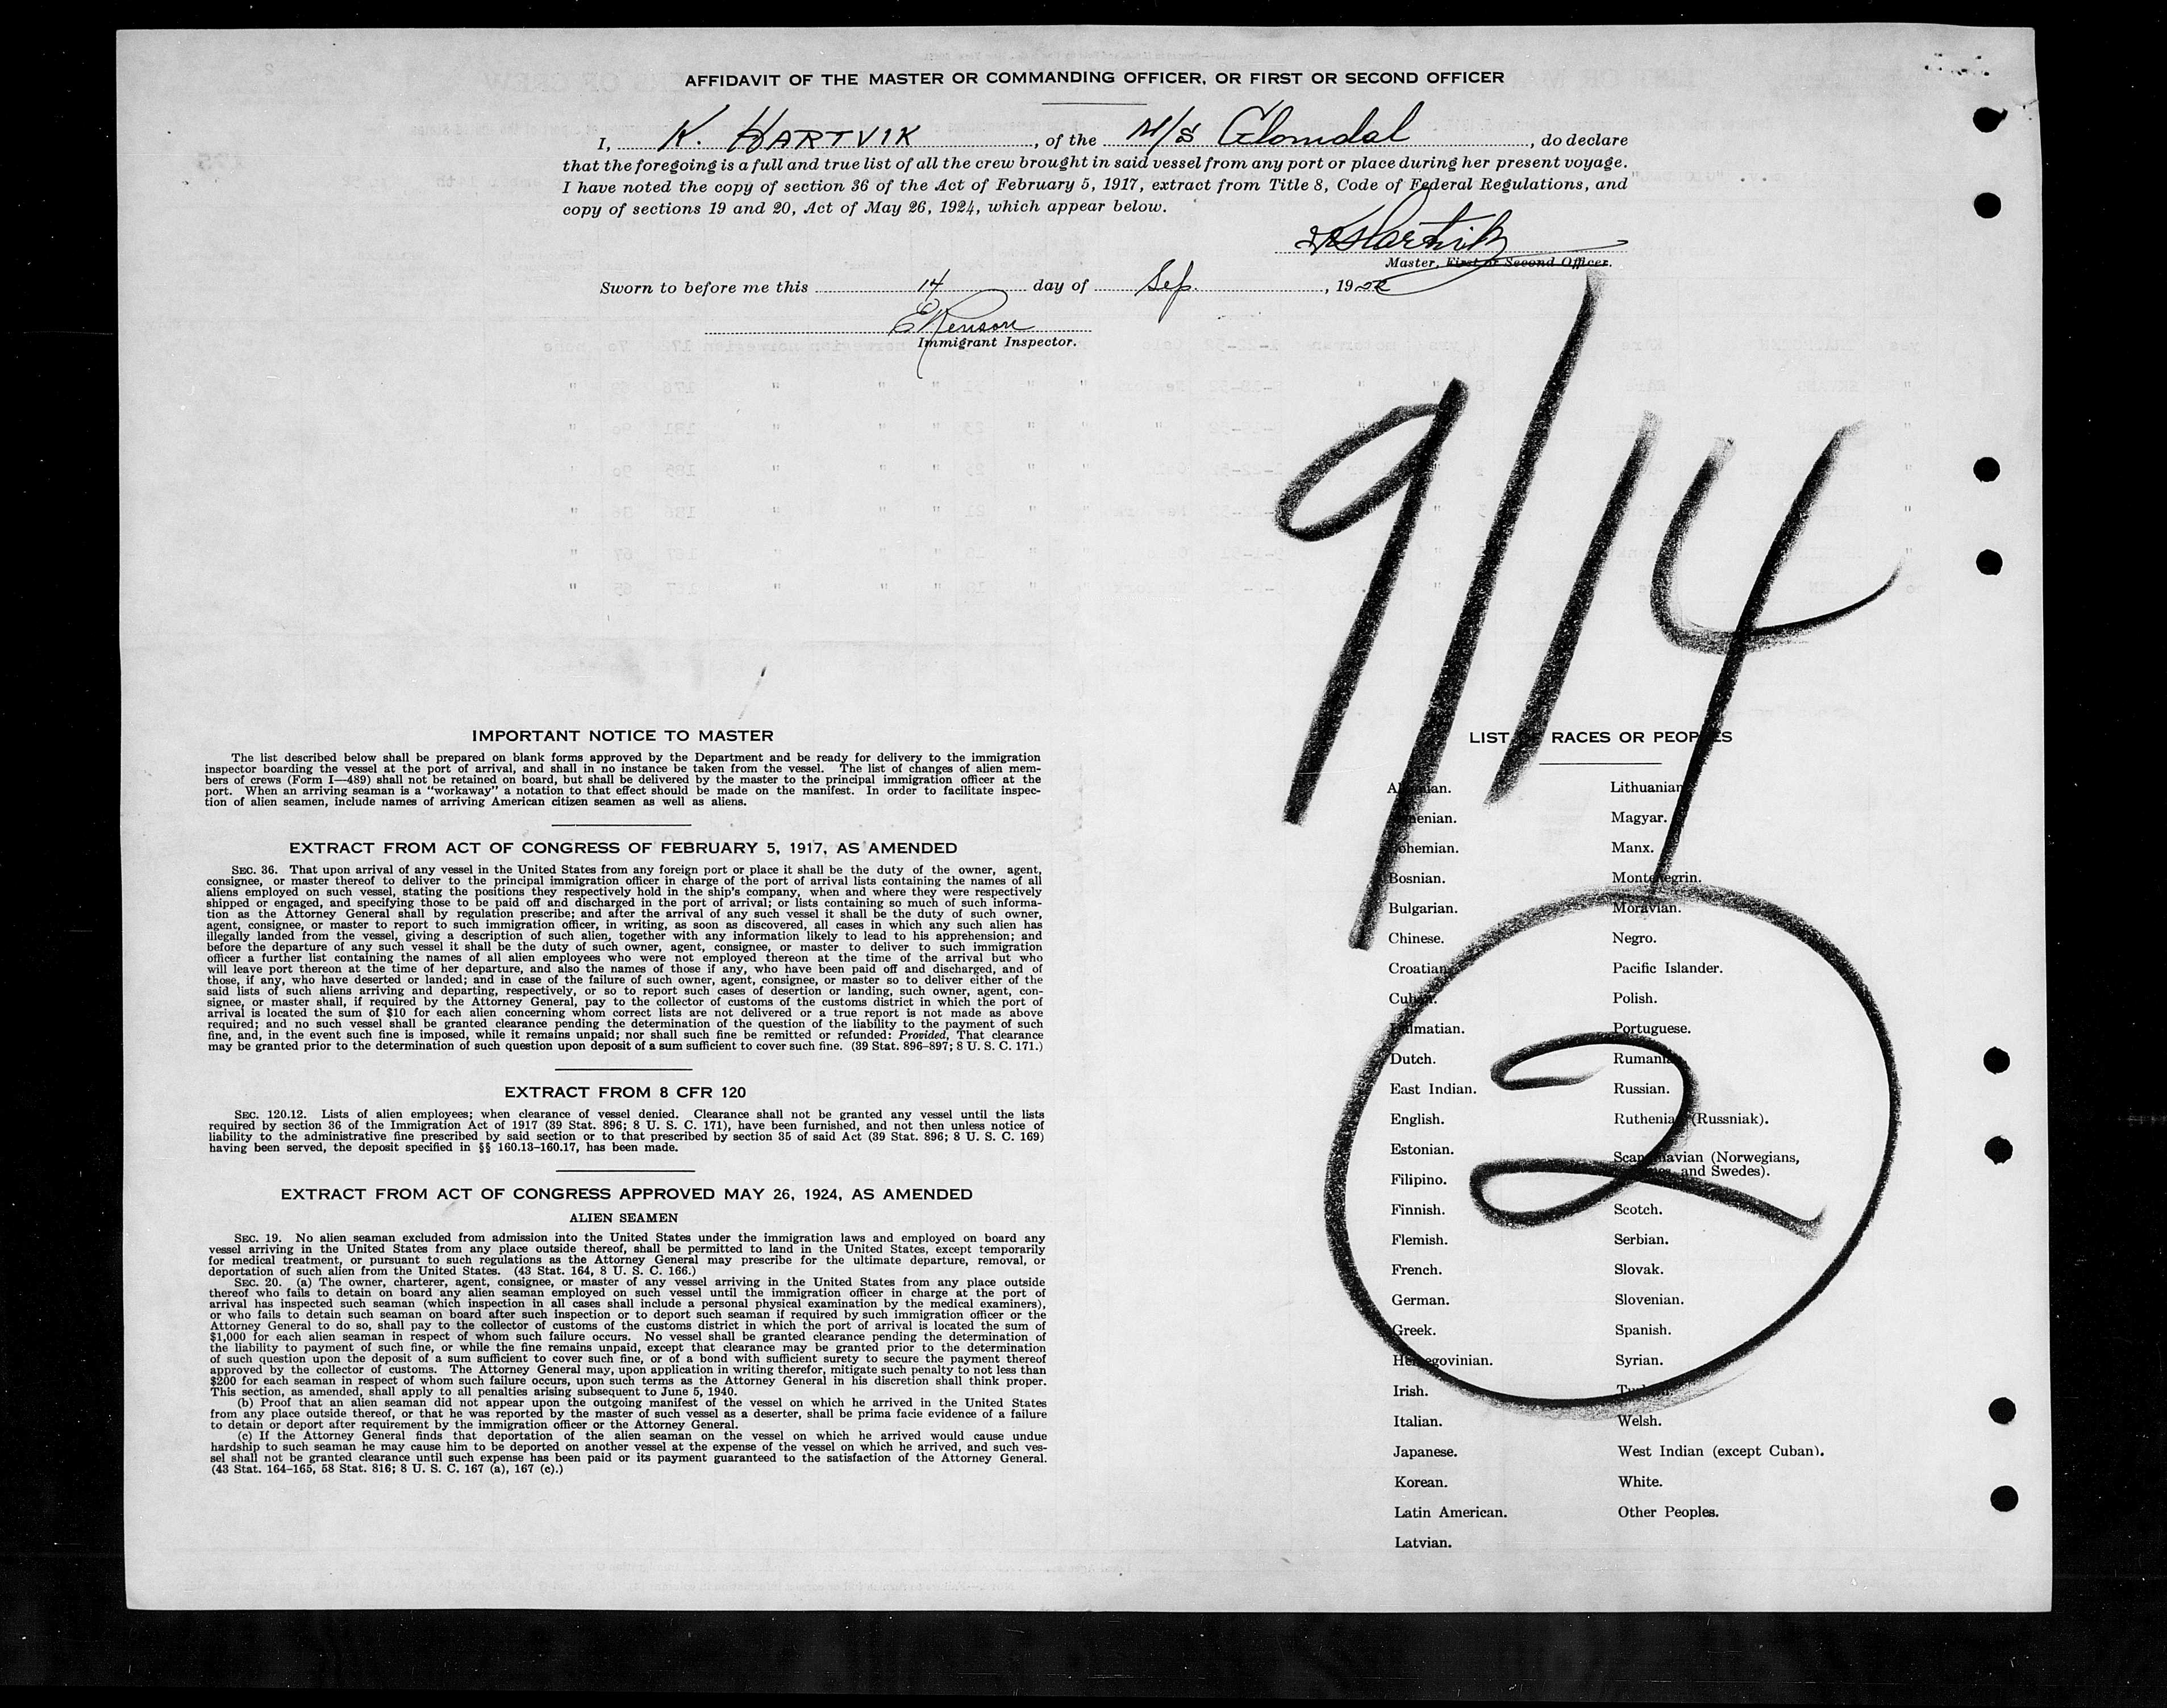 AFFIDAVIT OF THE MASTER OR COMMANDING OFFICER, OR FIRST OR SECOND OFFICER
I, K. HARTVIK, of the M/S Glomdal, do declare
that the foregoing is a full and true list of all the crew brought in said vessel from any port or place during her present voyage.
I have noted the copy of section 36 of the Act of February 5, 1917, extract from Title 8, Code of Federal Regulations, and
copy of sections 19 and 20, Act of May 26, 1924, which appear below.
K Hartvik
Master, First or Second Officer.
Sworn to before me this 14 day of Sep., 1952
Immigrant Inspector.
9/14
2
IMPORTANT NOTICE TO MASTER
The list described below shall be prepared on blank forms approved by the Department and be ready for delivery to the immigration
inspector boarding the vessel at the port of arrival, and shall in no instance be taken from the vessel. The list of changes of alien mem-
bers of crews (Form I—489) shall not be retained on board, but shall be delivered by the master to the principal immigration officer at the
port. When an arriving seaman is a "workaway" a notation to that effect should be made on the manifest. In order to facilitate inspec-
tion of alien seamen, include names of arriving American citizen seamen as well as aliens.
EXTRACT FROM ACT OF CONGRESS OF FEBRUARY 5, 1917, AS AMENDED
SEC. 36. That upon arrival of any vessel in the United States from any foreign port or place it shall be the duty of the owner, agent,
consignee, or master thereof to deliver to the principal immigration officer in charge of the port of arrival lists containing the names of all
aliens employed on such vessel, stating the positions they respectively hold in the ship's company, when and where they were respectively
shipped or engaged, and specifying those to be paid off and discharged in the port of arrival; or lists containing so much of such informa-
tion as the Attorney General shall by regulation prescribe; and after the arrival of any such vessel it shall be the duty of such owner,
agent, consignee, or master to report to such immigration officer, in writing, as soon as discovered, all cases in which any such alien has
illegally landed from the vessel, giving a description of such alien, together with any information likely to lead to his apprehension; and
before the departure of any such vessel it shall be the duty of such owner, agent, consignee, or master to deliver to such immigration
officer a further list containing the names of all alien employees who were not employed thereon at the time of the arrival but who
will leave port thereon at the time of her departure, and also the names of those if any, who have been paid off and discharged, and of
those, if any, who have deserted or landed; and in case of the failure of such owner, agent, consignee, or master so to deliver either of the
said lists of such aliens arriving and departing, respectively, or so to report such cases of desertion or landing, such owner, agent, con-
signee, or master shall, if required by the Attorney General, pay to the collector of customs of the customs district in which the port of
arrival is located the sum of $10 for each alien concerning whom correct lists are not delivered or a true report is not made as above
required; and no such vessel shall be granted clearance pending the determination of the question of the liability to the payment of such
fine, and, in the event such fine is imposed, while it remains unpaid; nor shall such fine be remitted or refunded: Provided, That clearance
may be granted prior to the determination of such question upon deposit of a sum sufficient to cover such fine. (39 Stat. 896–897; 8 U. S. C. 171.)
EXTRACT FROM 8 CFR 120
SEC. 120.12. Lists of alien employees; when clearance of vessel denied. Clearance shall not be granted any vessel until the lists
required by section 36 of the Immigration Act of 1917 (39 Stat. 896; 8 U. S. C. 171), have been furnished, and not then unless notice of
liability to the administrative fine prescribed by said section or to that prescribed by section 35 of said Act (39 Stat. 896; 8 U. S. C. 169)
having been served, the deposit specified in §§ 160.13–160.17, has been made.
EXTRACT FROM ACT OF CONGRESS APPROVED MAY 26, 1924, AS AMENDED
ALIEN SEAMEN
SEC. 19. No alien seaman excluded from admission into the United States under the immigration laws and employed on board any
vessel arriving in the United States from any place outside thereof, shall be permitted to land in the United States, except temporarily
for medical treatment, or pursuant to such regulations as the Attorney General may prescribe for the ultimate departure, removal, or
deportation of such alien from the United States. (43 Stat. 164, 8 U. S. C. 166.)
SEC. 20. (a) The owner, charterer, agent, consignee, or master of any vessel arriving in the United States from any place outside
thereof who fails to detain on board any alien seaman employed on such vessel until the immigration officer in charge at the port of
arrival has inspected such seaman (which inspection in all cases shall include a personal physical examination by the medical examiners),
or who fails to detain such seaman on board after such inspection or to deport such seaman if required by such immigration officer or the
Attorney General to do so, shall pay to the collector of customs of the customs district in which the port of arrival is located the sum of
$1,000 for each alien seaman in respect of whom such failure occurs. No vessel shall be granted clearance pending the determination of
the liability to payment of such fine, or while the fine remains unpaid, except that clearance may be granted prior to the determination
of such question upon the deposit of a sum sufficient to cover such fine, or of a bond with sufficient surety to secure the payment thereof
approved by the collector of customs. The Attorney General may, upon application in writing therefor, mitigate such penalty to not less than
$200 for each seaman in respect of whom such failure occurs, upon such terms as the Attorney General in his discretion shall think proper.
This section, as amended, shall apply to all penalties arising subsequent to June 5, 1940.
(b) Proof that an alien seaman did not appear upon the outgoing manifest of the vessel on which he arrived in the United States
from any place outside thereof, or that he was reported by the master of such vessel as a deserter, shall be prima facie evidence of a failure
to detain or deport after requirement by the immigration officer or the Attorney General.
(c) If the Attorney General finds that deportation of the alien seaman on the vessel on which he arrived would cause undue
hardship to such seaman he may cause him to be deported on another vessel at the expense of the vessel on which he arrived, and such ves-
sel shall not be granted clearance until such expense has been paid or its payment guaranteed to the satisfaction of the Attorney General.
(43 Stat. 164–165, 58 Stat. 816; 8 U. S. C. 167 (a), 167 (c).)
LIST OF RACES OR PEOPLES
Albanian.
Armenian.
Bohemian.
Bosnian.
Bulgarian.
Chinese.
Croatian.
Cuban.
Dalmatian.
Dutch.
East Indian.
English.
Estonian.
Filipino.
Finnish.
Flemish.
French.
German.
Greek.
Herzegovinian.
Irish.
Italian.
Japanese.
Korean.
Latin American.
Latvian.
Lithuanian.
Magyar.
Manx.
Montenegrin.
Moravian.
Negro.
Pacific Islander.
Polish.
Portuguese.
Rumanian.
Russian.
Ruthenian (Russniak).
Scandinavian (Norwegians,
Danes, and Swedes).
Scotch.
Serbian.
Slovak.
Slovenian.
Spanish.
Syrian.
Turkish.
Welsh.
West Indian (except Cuban).
White.
Other Peoples.